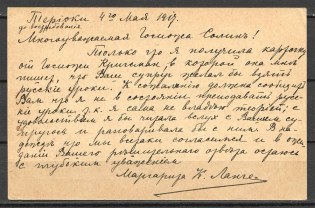 Терiоки 4го Мая 1917.
до востребованiя
Многоуважаемая Госпожа Салинъ!
Только что я получила карточку
отъ Госпожи которой она мнѣ
пишетъ, что Вашъ супругъ желалъ бы взять
русскiе уроки. Къ сожалѣнiю должна сообщить
Вамъ что я не въ состоянiи преподавать рус
уроки т.к. я сама не владѣю
удовольствiемъ я бы читала вслухъ съ Вашимъ су-
пругомъ и разговаривала бы съ нимъ. Въ на-
деждѣ что мы согласимся и въ ожи-
данiи Вашего отвѣта остаюсь
съ глубокимъ уваженiемъ
Маргарита К. Ланге